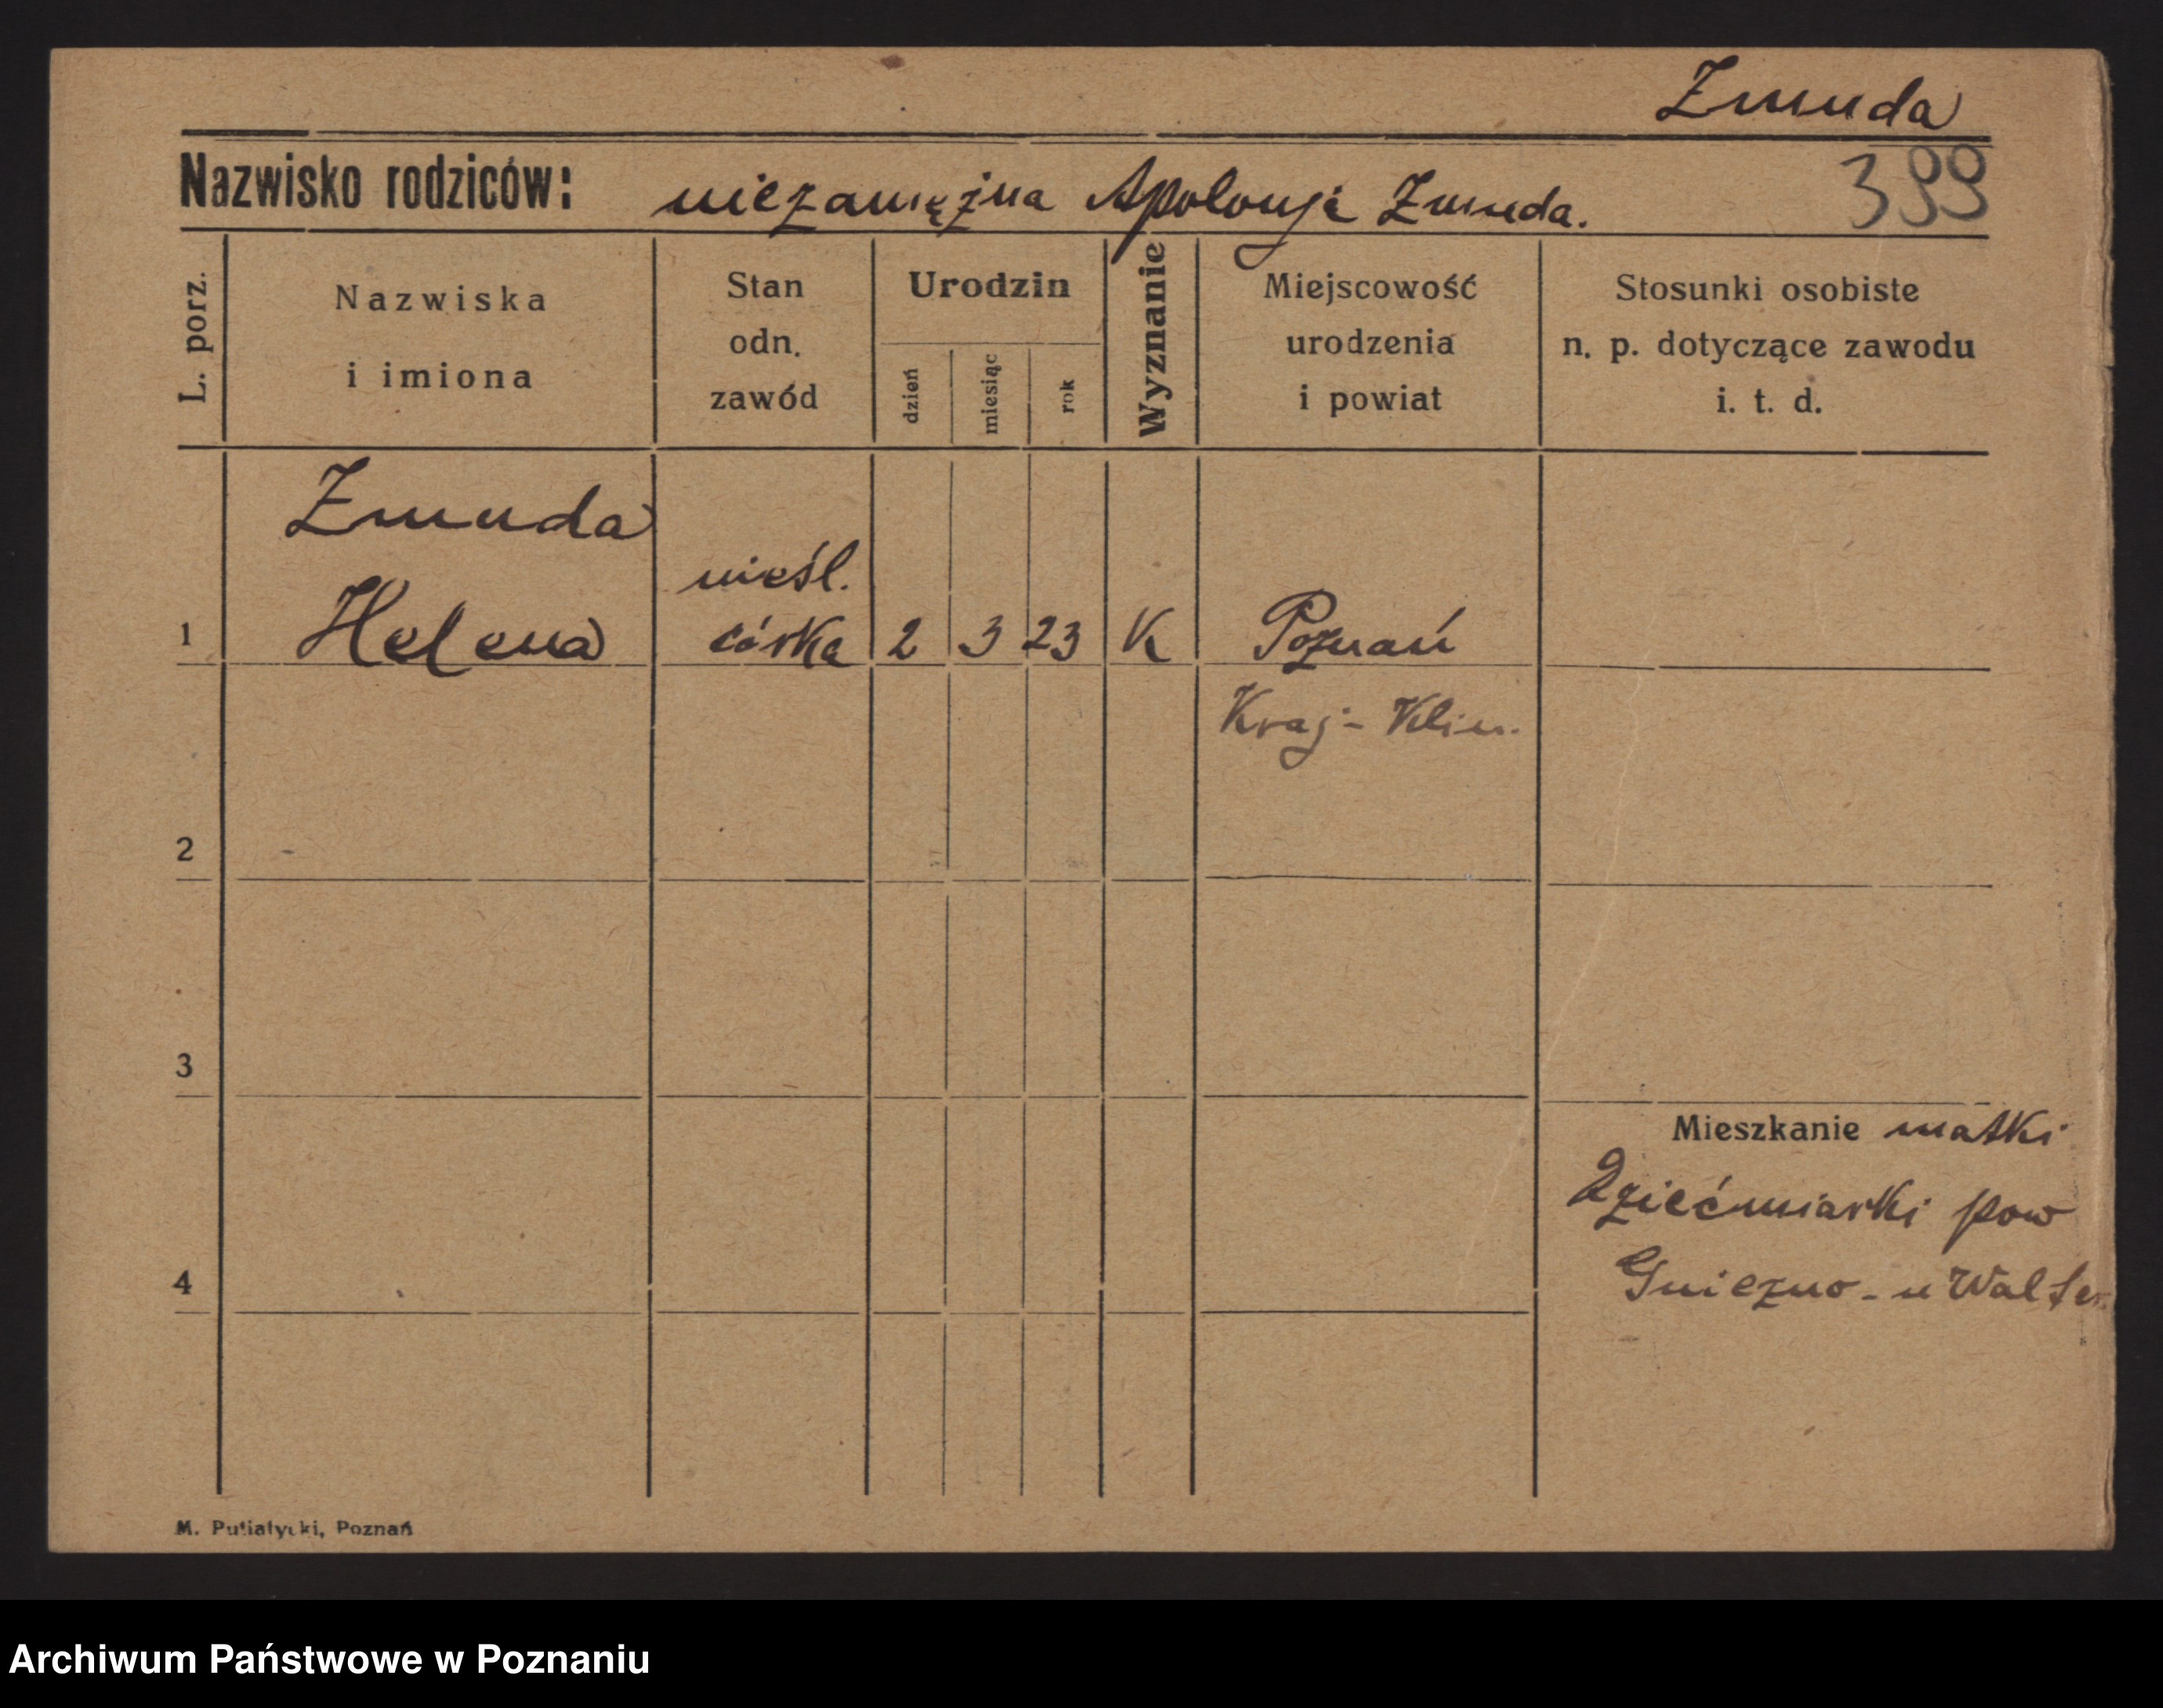 Żmuda
Nazwisko rodziców: niezamężna Apolonja Żmuda.
399
L. porz.
Nazwiska
i imiona
Stan
odn.
zawód
Urodzin
dzień
miesiąc
rok
Wyznanie
Miejscowość
urodzenia
i powiat
Stosunki osobiste
n. p. dotyczące zawodu
i. t. d.
Żmuda
nieśl.
1 Helena córka 2 3 23 K Poznań
Kraj - Klin.
2
3
Mieszkanie matki
Dziećmiarki pow
4 Gniezno - u Walter
M. Putiatycki, Poznań
Archiwum Państwowe w Poznaniu